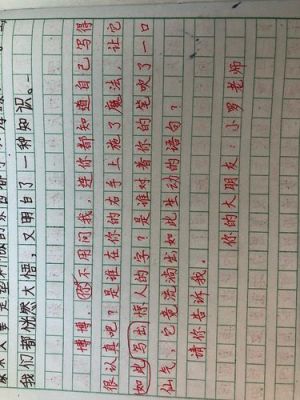 我们都恍然大悟，又明白了一种知识。
博博，你不用问我，连你都知道自己写得
很认真吧？是谁在你的右手上施了魔法，让它
如此写出惊人的字？是谁对着你的笔吹了一口
仙气，它竟流淌出如此生动的语句？
请你告诉我。
你的大朋友：小罗老师